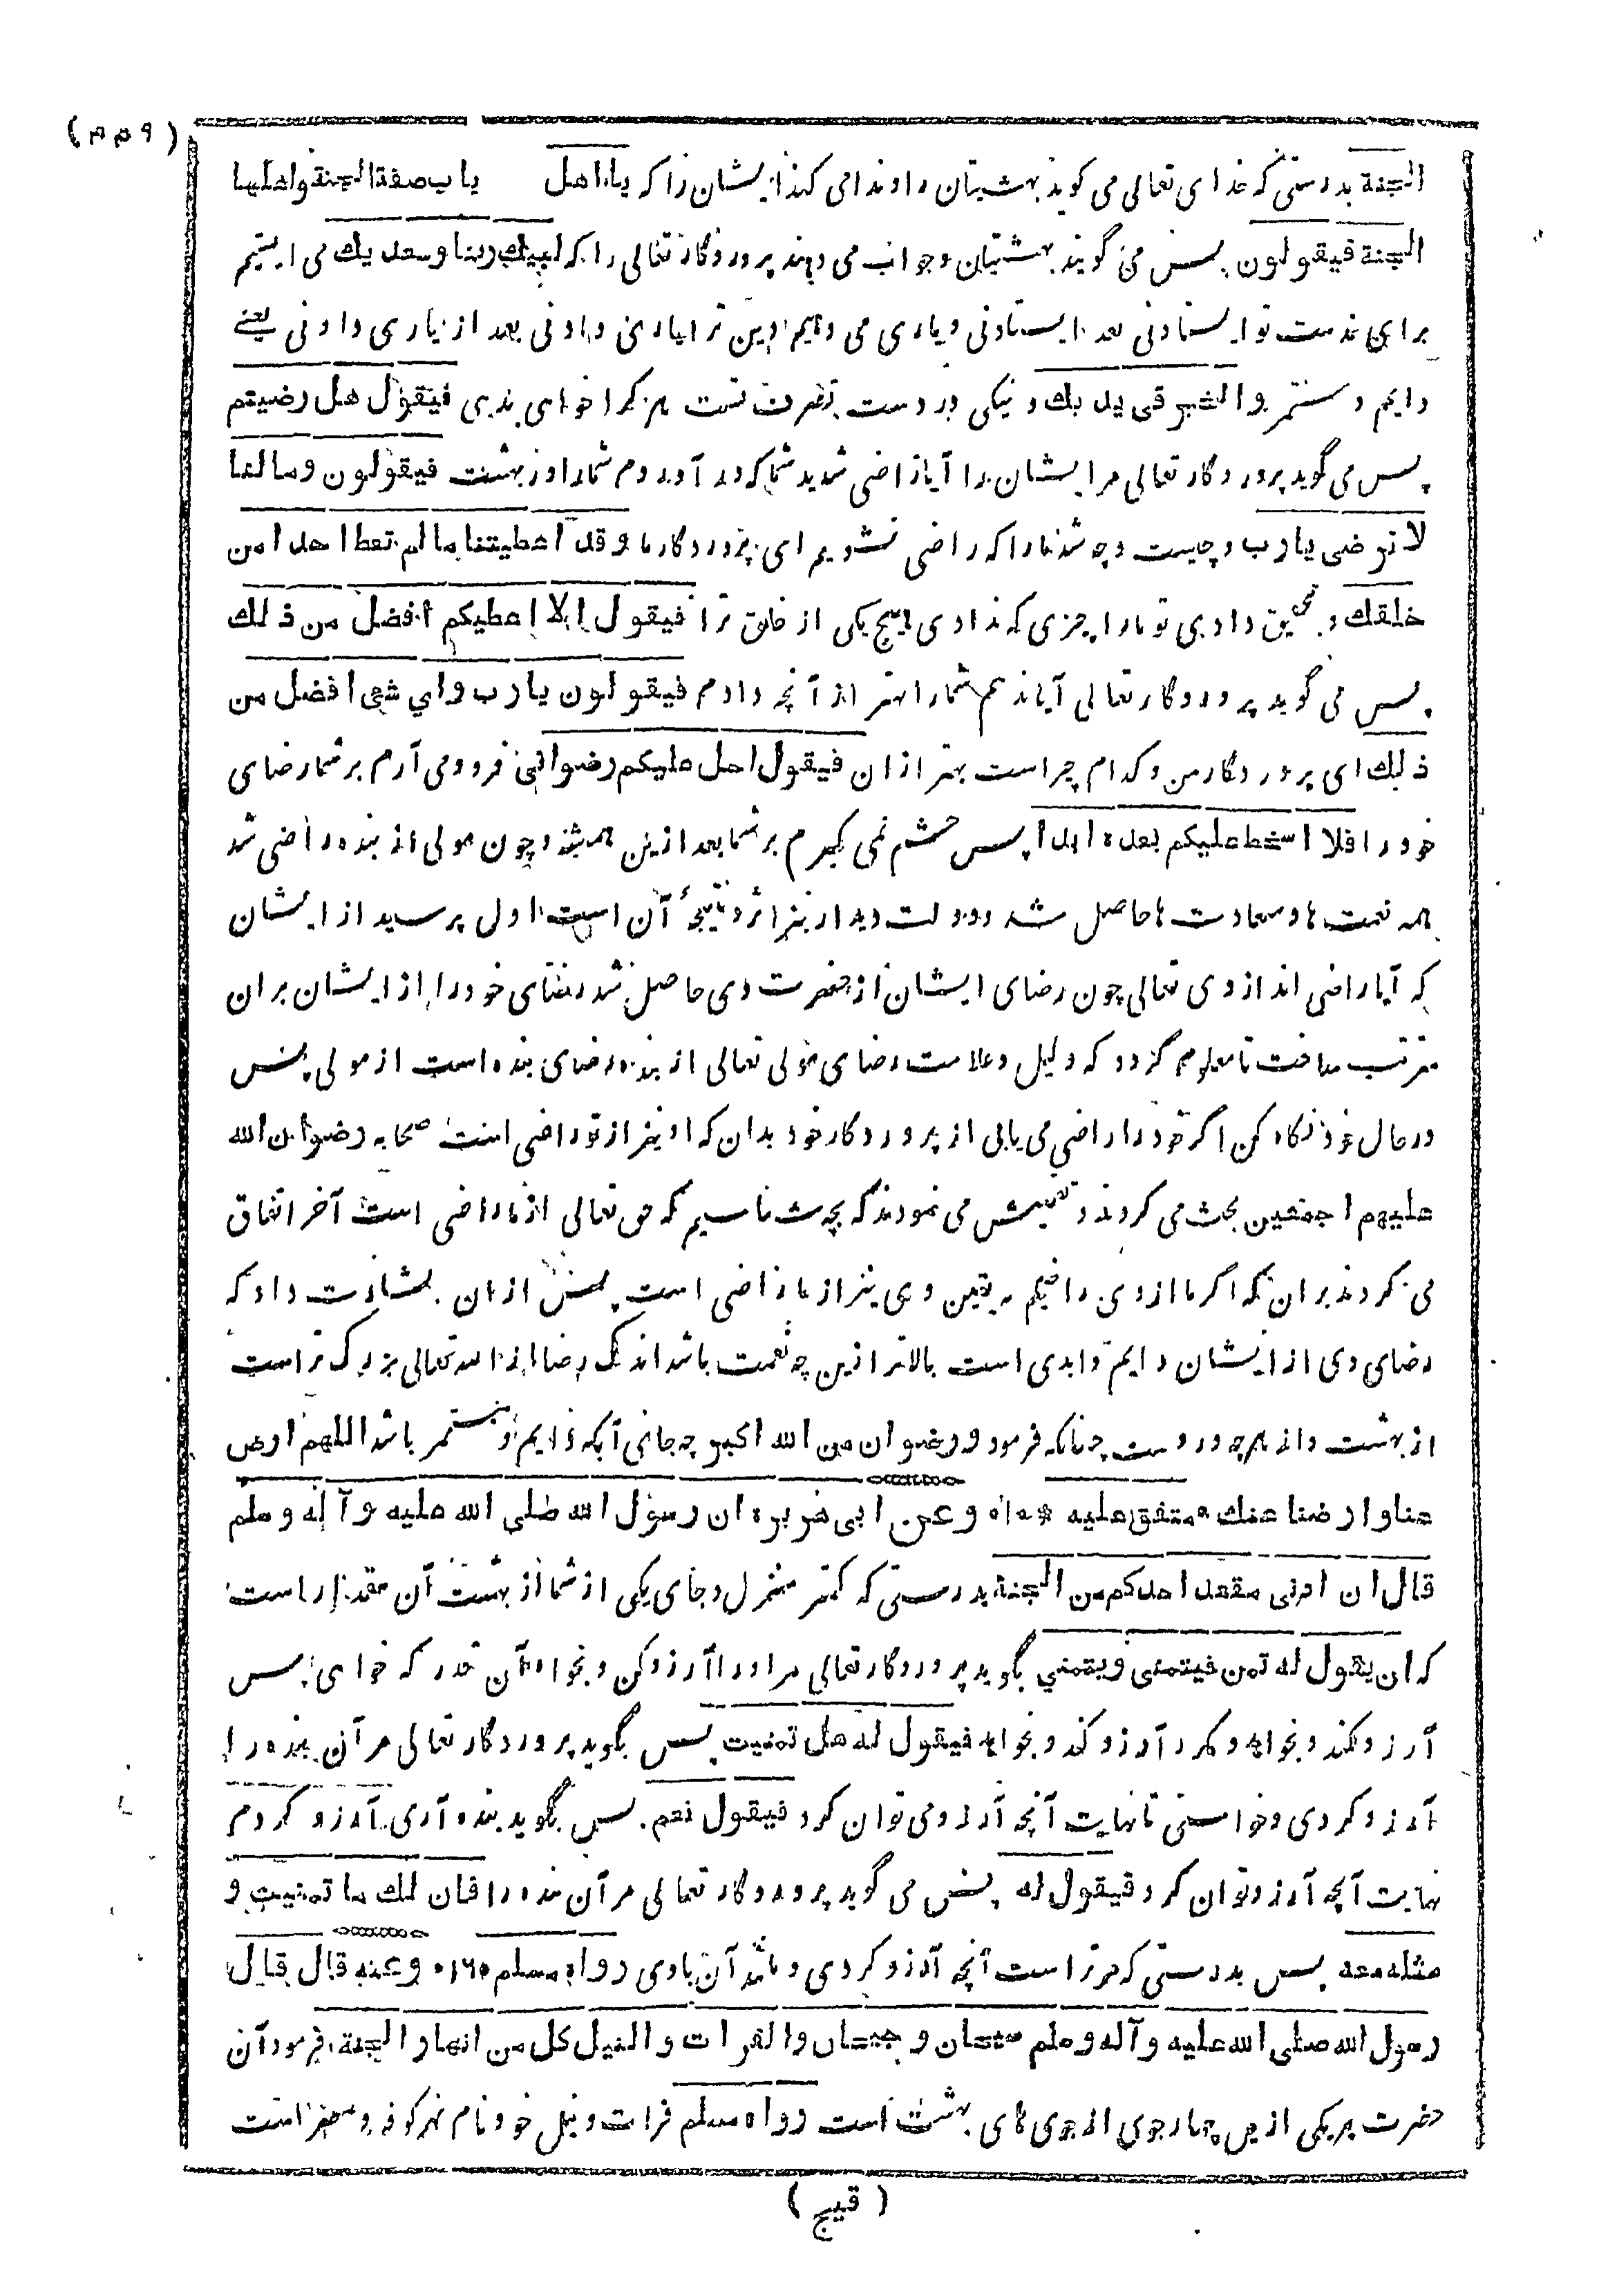 (۴۴۹)
الجنة بدرستی که خدای تعالی می گوید بهشتیان را و ندا می کند ایشان را که یا اهل باب صفة الجنة واهلها
الجنة فیقولون پس می گویند بهشتیان و جواب می دهند پروردگار تعالی را که لبیك ربنا وسعدیك می ایستیم
برای خدمت تو ایستادنی بعد ایستادنی و یاری می دهیم دین ترا یاری دادنی بعد از یاری دادنی یعنے
دایم و مستمر والخیر فی یدیك و نیکی در دست تصرف تست هر کرا خواهی بدهی فیقول هل رضیتم
پس می گوید پروردگار تعالی مر ایشان را آیا راضی شدید شما که در آوردم شما را در بهشت فیقولون وما لنا
لا نرضی یا رب و چیست و چه شد ما را که راضی نشویم ای پروردگار ما وقد اعطیتنا ما لم تعط احدا من
خلقك و بتحقیق دادهی تو ما را چیزی که ندادی هیچ یکی از خلق ترا فیقول الا اعطیکم افضل من ذلك
پس می گوید پروردگار تعالی آیا ندهم شما را بهتر از آنچه دادم فیقولون یا رب وای شیئ افضل من
ذلك ای پروردگار من و کدام چیز است بهتر از ان فیقول احل علیکم رضوانی فرود می آرم بر شما رضای
خود را فلا اسخط علیکم بعده ابدا پس خشم نمی گیرم بر شما بعد ازین همیشه و چون مولی از بنده راضی شد
همه نعمت ها و سعادت ها حاصل شد و دولت دیدار نیز اثر و نتیجهٔ آن است اولی پرسید از ایشان
که آیا راضی اند از وی تعالی چون رضای ایشان از حضرت وی حاصل شد رضای خود را از ایشان بران
مترتب ساخت تا معلوم گردد که دلیل و علامت رضای مولی تعالی از بنده رضای بنده است از مولی پس
در حال خود نگاه کن اگر خود را راضی می یابی از پروردگار خود بدان که او نیز از تو راضی است صحابه رضوان الله
علیهم اجمعین بحث می کردند و تفتیش می نمودند که بچه شناسیم که حق تعالی از ما راضی است آخر اتفاق
می کردند بران که اگر ما از وی راضیم به یقین وی نیز از ما راضی است پس از ان بشارت داد که
رضای وی از ایشان دایم و ابدی است بالاتر ازین چه نعمت باشد اندک رضا از الله تعالی بزرگ تر است
از بهشت و از هرچه در وست چنانکه فرمود ورضوان من الله اکبر چه جای آنکه دایم و مستمر باشد اللهم ارض
عنا وارضنا عنك متفق علیه * وعن ابی هریرة ان رسول الله صلی الله علیه وآله وسلم
قال ان ادنی مقعد احدکم من الجنة بدرستی که کمتر منزل و جای یکی از شما از بهشت آن مقدار است
که ان یقول له تمن فیتمنی ویتمنی بگوید پروردگار تعالی مر او را آرزو کن و بخواه آن قدر که خواهی پس
آرزو بکند و بخواهد و مکرر آرزو کند و بخواهد فیقول له هل تمنیت پس بگوید پروردگار تعالی مر آن بنده را
آرزو کردی و خواستی تا نهایت آنچه آرزو می توان کرد فیقول نعم پس بگوید بنده آری آرزو کردم
نهایت آنچه آرزو توان کرد فیقول له پس می گوید پروردگار تعالی مر آن بنده را فان لك ما تمنیت و
مثله معه پس بدرستی که مر ترا است آنچه آرزو کردی و مانند آن با وی رواه مسلم ۱۶۰ وعنه قال قال
رسول الله صلی الله علیه وآله وسلم سیحان وجیحان والفرات والنیل کل من انهار الجنة فرمود آن
حضرت هر یکی ازین چهار جوی از جوی های بهشت است رواه مسلم فرات و نیل خود نام نهر کوفه و مصر است
(قیح)